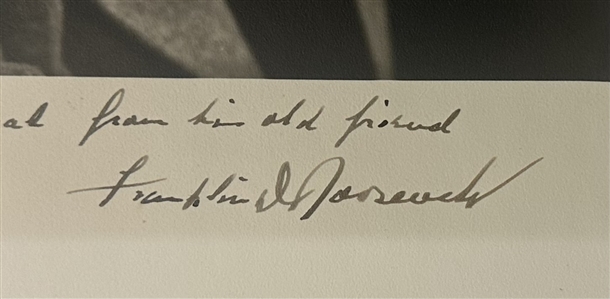 al from his old friend
Franklin D Roosevelt